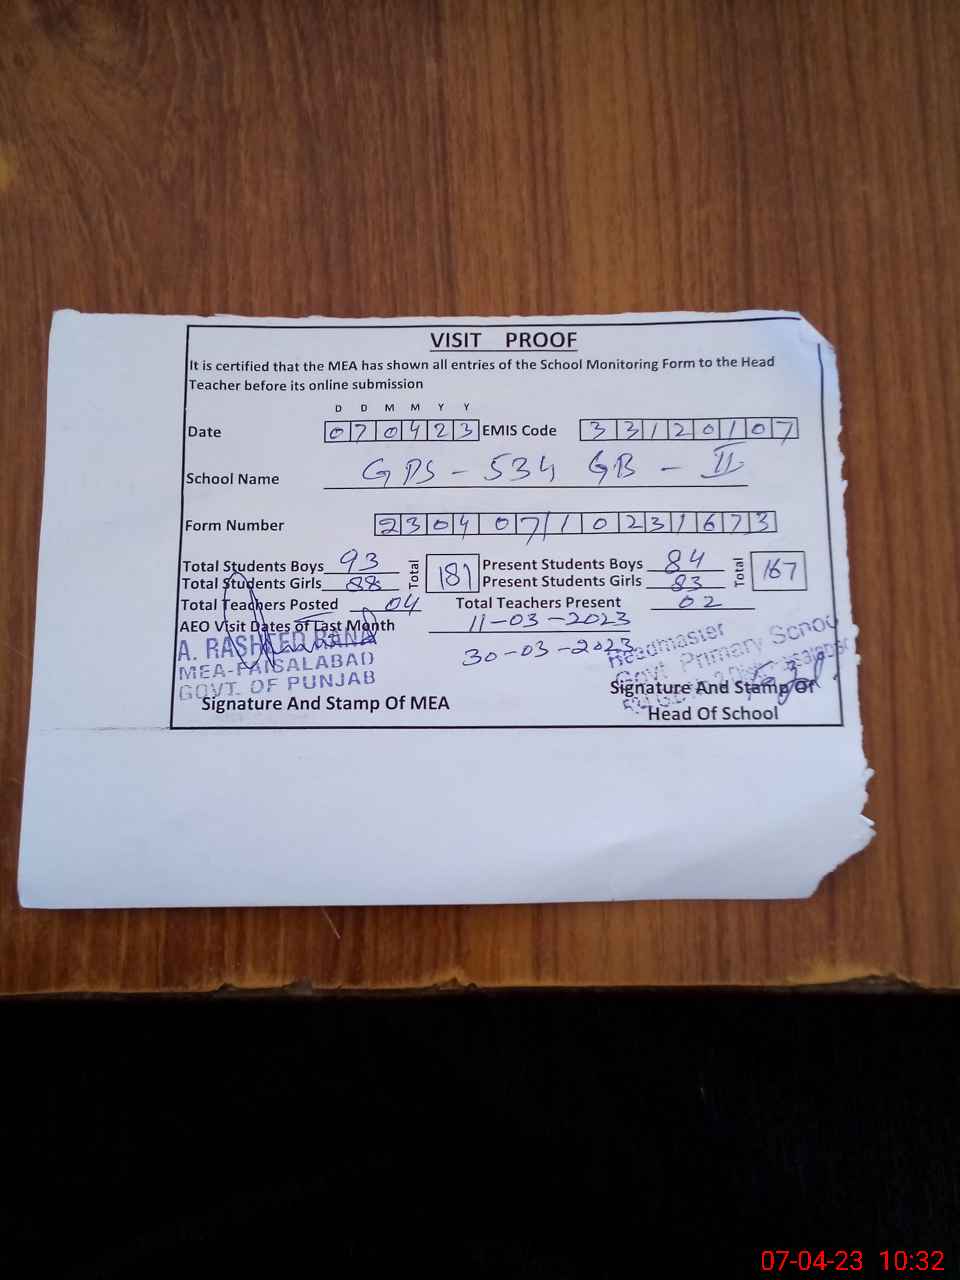 VISIT PROOF
It is certified that the MEA has shown all entries of the School Monitoring Form to the Head
Teacher before its online submission
D D M M Y Y
Date 070423 EMIS Code 33120107
School Name GPS - 534 GB - II
Form Number 230407/1023 1673
Total Students Boys 93 Total 181 Present Students Boys 84 Total 167
Total Students Girls 88 Present Students Girls 83
Total Teachers Posted 04 Total Teachers Present 02
AEO Visit Dates of Last Month 11-03-2023
30-03-2023
A. RASHEED RANA
MEA-FAISALABAD
GOVT. OF PUNJAB
Signature And Stamp Of MEA
Headmaster
Govt Primary School
Signature And Stamp Of
Head Of School
07-04-23 10:32